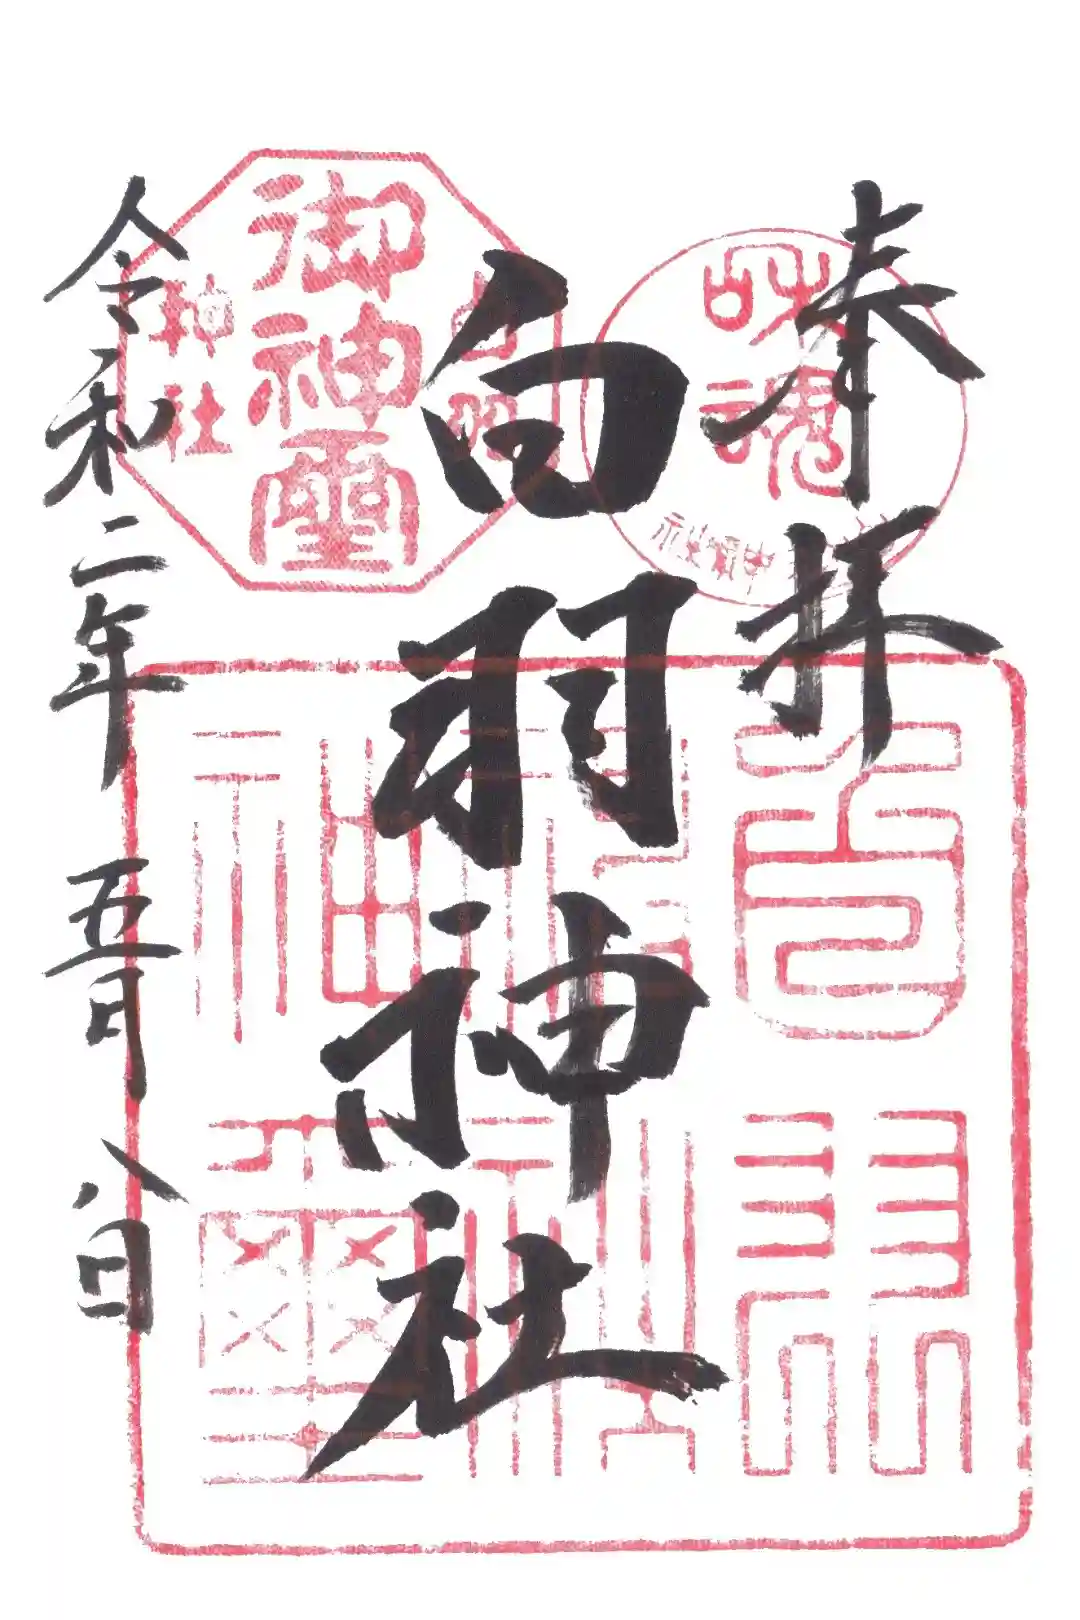 奉拝
白羽神社
令和二年
五月八日
御神璽
白羽
神社
白羽神社神璽